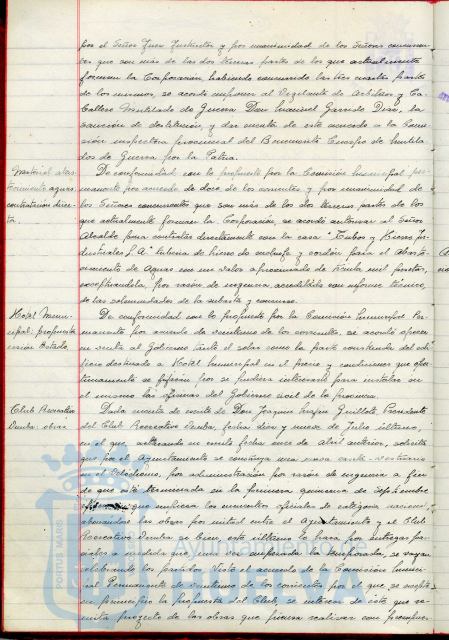 por el Señor Juez Instructor y por unanimidad de los Señores concurren-
tes que son más de las dos terceras partes de los que actualmente
forman la Corporación, habiendo concurrido las tres cuartas partes
de los mismos, se acordó imponer al Vigilante de Arbitrios y Ca-
ballero Mutilado de Guerra Don Manuel Garrido Díaz, la
sanción de destitución, y dar cuenta de este acuerdo a la Comi-
sión inspectora provincial del Benemérito Cuerpo de Mutila-
dos de Guerra por la Patria.
Material abas-
tecimiento aguas
contratación direc-
ta.
De conformidad con lo propuesto por la Comisión Municipal per-
manente por acuerdo de doce de los corrientes, y por unanimidad de
los Señores concurrentes que son más de las dos terceras partes de los
que actualmente forman la Corporación, se acordó autorizar al Señor
Alcalde para contratar directamente con la casa "Tubos y Hierros In-
dustriales S.A." tubería de hierro de enchufe y cordón para el abaste-
cimiento de Aguas con un valor aproximado de treinta mil pesetas,
exceptuándola, por razón de urgencia, acreditada con informe técnico,
de las solemnidades de la subasta y concurso.
Hotel Muni-
cipal: propuesta
cesión Estado.
De conformidad con lo propuesto por la Comisión Municipal Per-
manente por acuerdo de veintiuno de los corrientes, se acordó ofrecer
en venta al Gobierno tanto el solar como la parte construida del edi-
ficio destinado a Hotel Municipal en el precio y condiciones que opor-
tunamente se fijarán por si pudiera interesarle para instalar en
el mismo las oficinas del Gobierno civil de la provincia.
Club Recreativo
Huelva: obras
Dada cuenta de escrito de Don Joaquín Guillot, Presidente
del Club Recreativo Huelva, fecha diez y nueve de Julio último,
en el que, aclarando su escrito fecha once de Abril anterior, solicita
que por el Ayuntamiento se construya una nueva caseta-vestuario
en el Velódromo, por administración por razón de urgencia a fin
de que esté terminada en la primera quincena de Septiembre
que empiezan los encuentros oficiales de categoría nacional
abonándose las obras por mitad entre el Ayuntamiento y el Club
Recreativo Huelva si bien, este último lo hará por entregas par-
ciales a medida que, una vez empezada la temporada, se vayan
celebrando los partidos. Visto el acuerdo de la Comisión Munici-
pal Permanente de veintiuno de los corrientes por el que, se acepta
en principio la propuesta del Club, se interesa de éste que re-
mita proyecto de las obras que piensa realizar con presupues-
PORTUS MARIS